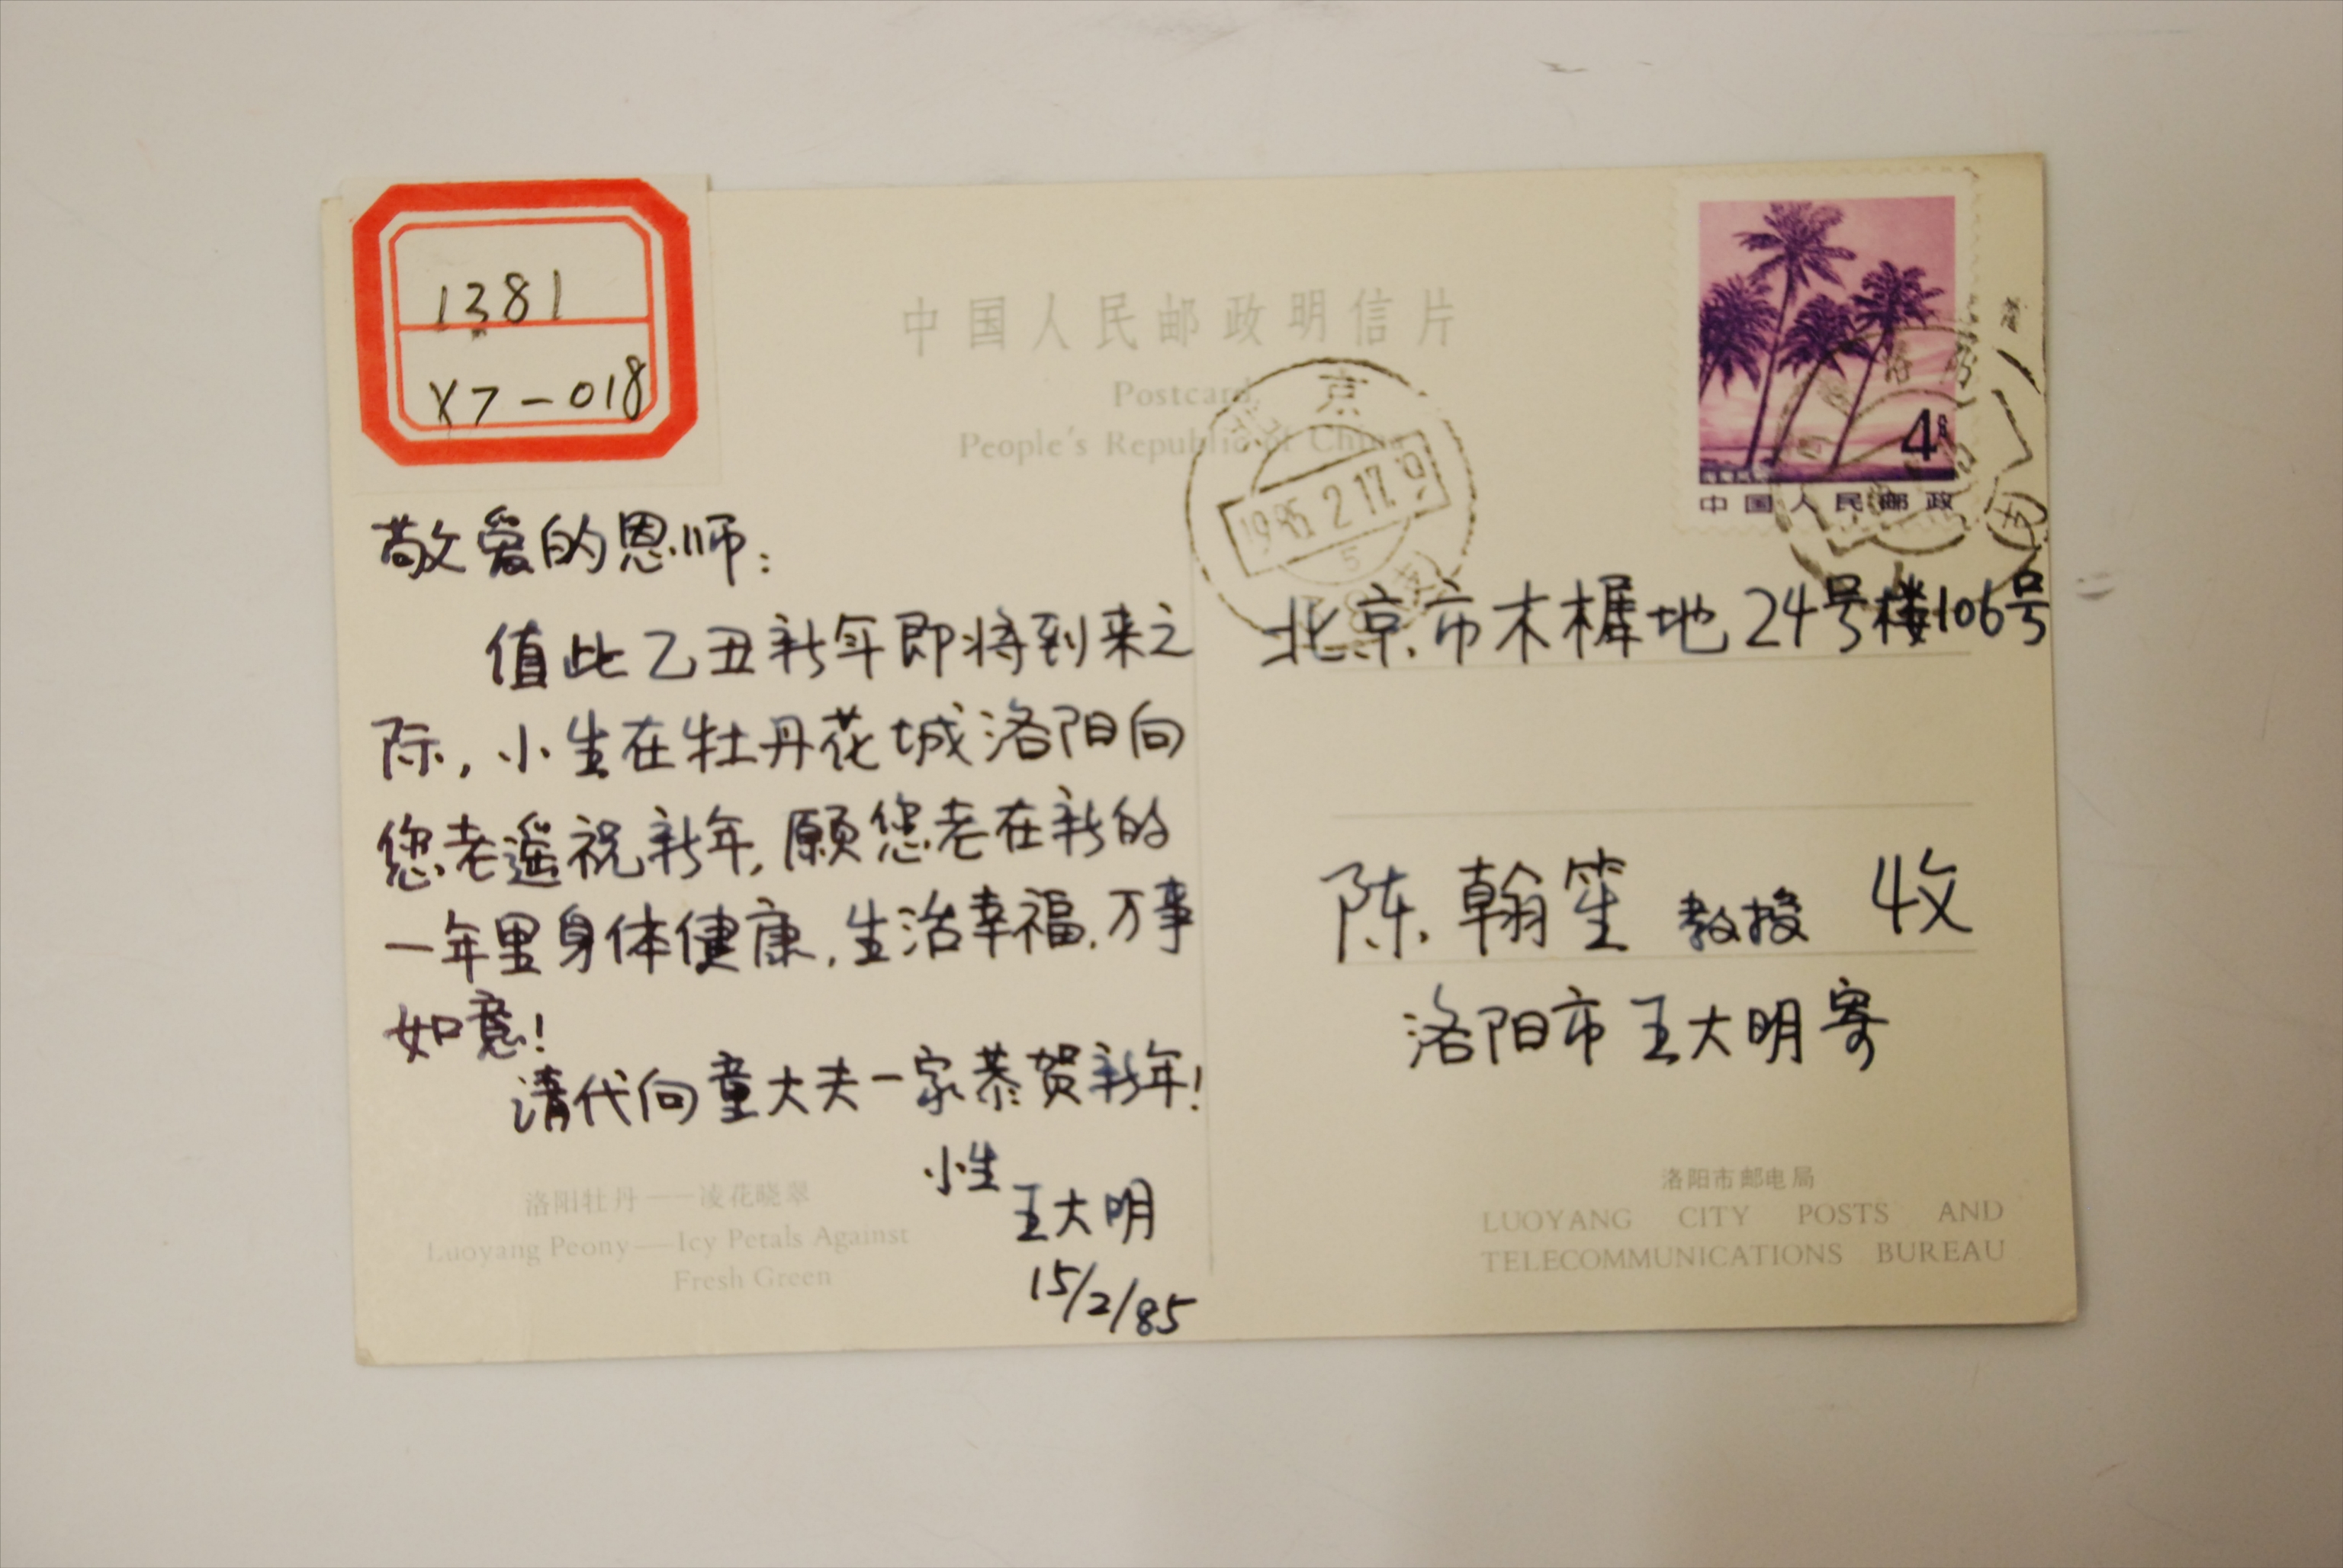 1381
X7-018
中国人民邮政明信片
Postcard
People's Republic of China
4分
中国人民邮政
北京
1985.2.17.
5
敬爱的恩师:
值此乙丑新年即将到来之
际,小生在牡丹花城洛阳向
您老遥祝新年,愿您老在新的
一年里身体健康,生活幸福,万事
如意!
请代向童大夫一家恭贺新年!
小生
王大明
15/2/85
洛阳牡丹——凌花晓翠
Luoyang Peony—Icy Petals Against
Fresh Green
北京市木樨地24号楼106号
陈翰笙教授 收
洛阳市王大明寄
洛阳市邮电局
LUOYANG CITY POSTS AND
TELECOMMUNICATIONS BUREAU